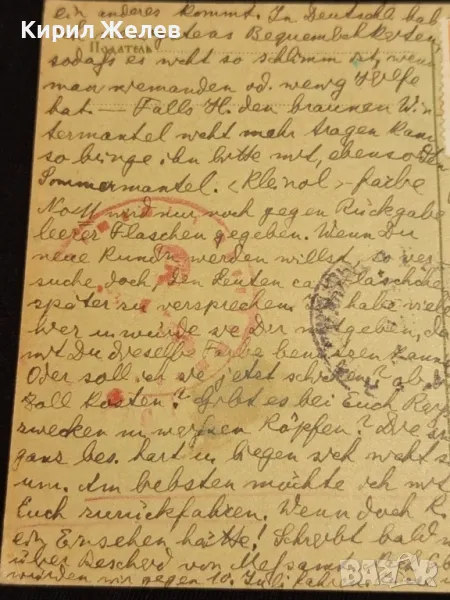 ein anderes kommt. In Deutschl. hab
Кирил Желев
Податель
Bequemlichkeiten,
sodaß es nicht so schlimm ist, wenn
man niemanden od. wenig Hilfe
hat. — Falls H. den braunen Win-
termantel nicht mehr tragen kann
so bringe ihn bitte mit, ebenso den
Sommermantel. <Kleinol>-farbe
wird nur noch gegen Rückgabe
leerer Flaschen gegeben. Wenn Du
neue Kundin werden willst, so ver-
suche doch, den Leuten Fläschchen
später zu versprechen. habe viele
hier u. würde sie Dir mitgeben, da-
mit Du dieselbe Farbe benutzen kann
Oder soll ich sie jetzt schicken?
Zoll kosten? Gibt es bei Euch
zwecken m. weißen Köpfen? Die
ganz bes. hart u. biegen sich nicht
um. Am liebsten möchte ich mit
Euch zurückfahren. Wenn doch K.
ein Einsehen hätte! Schreibt bald
über Bescheid von
würden wir gegen 10. Juli fahren
bazar